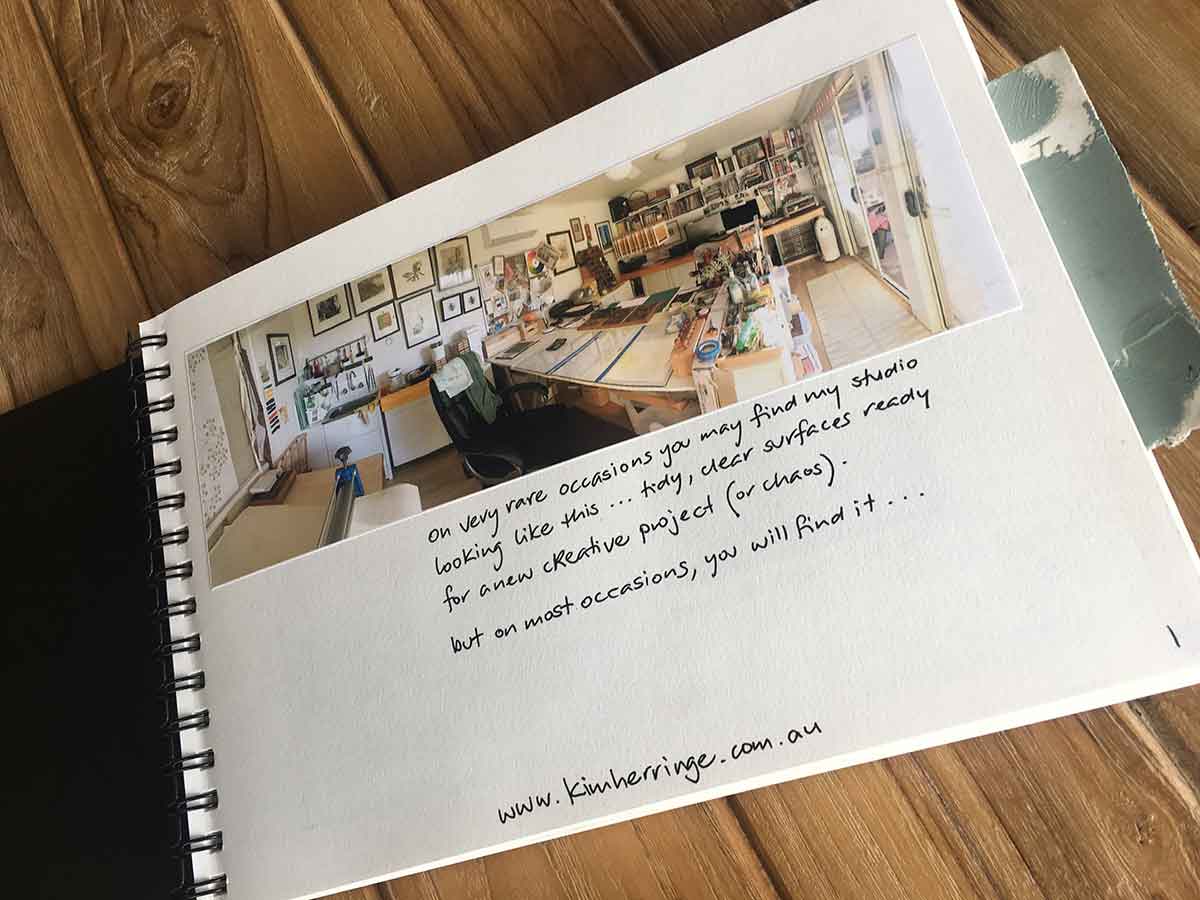 on very rare occasions you may find my studio
looking like this ... tidy, clear surfaces ready
for a new creative project (or chaos).
but on most occasions, you will find it ...
1
www.kimherringe.com.au